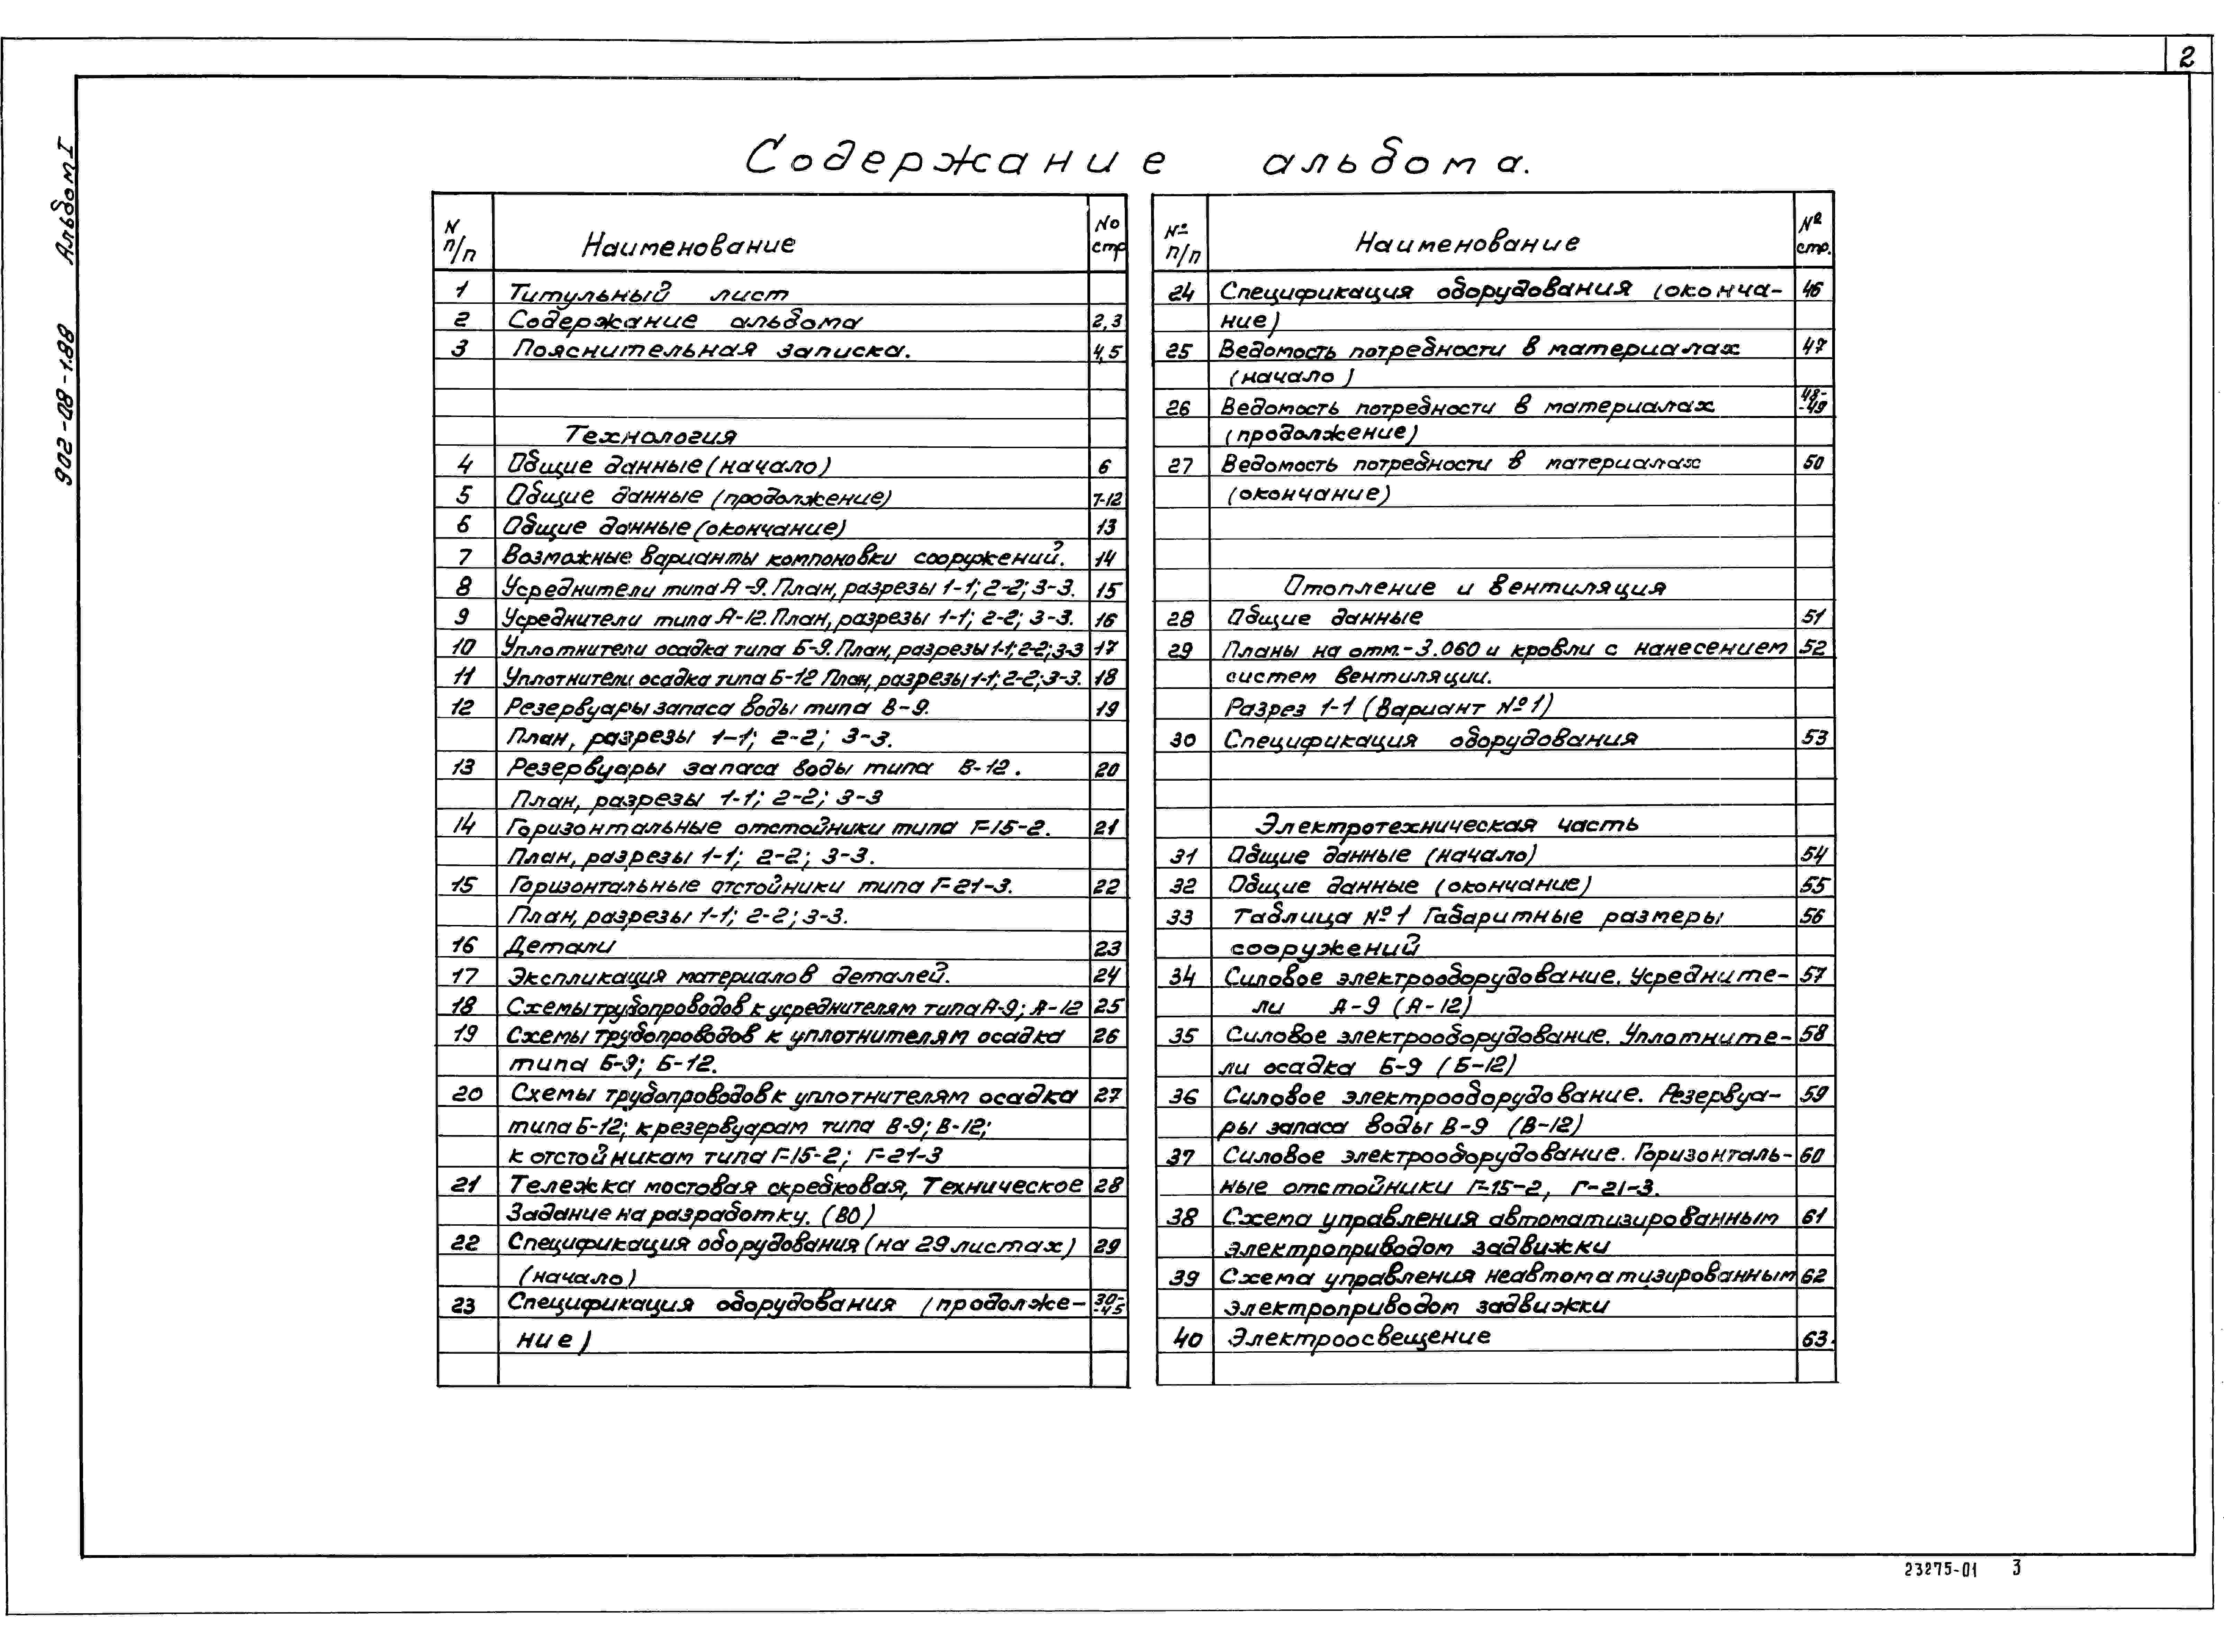 2
Альбом I
902-08-1.88
Содержание альбома.
N п/п Наименование No стр
1 Титульный лист
2 Содержание альбома 2,3
3 Пояснительная записка. 4,5
Технология
4 Общие данные (начало) 6
5 Общие данные (продолжение) 7-12
6 Общие данные (окончание) 13
7 Возможные варианты компоновки сооружений. 14
8 Усреднители типа А-9. План, разрезы 1-1; 2-2; 3-3. 15
9 Усреднители типа А-12. План, разрезы 1-1; 2-2; 3-3. 16
10 Уплотнители осадка типа Б-9. План, разрезы 1-1; 2-2; 3-3 17
11 Уплотнители осадка типа Б-12 План, разрезы 1-1; 2-2; 3-3. 18
12 Резервуары запаса воды типа В-9. 19
План, разрезы 1-1; 2-2; 3-3.
13 Резервуары запаса воды типа В-12. 20
План, разрезы 1-1; 2-2; 3-3
14 Горизонтальные отстойники типа Г-15-2. 21
План, разрезы 1-1; 2-2; 3-3.
15 Горизонтальные отстойники типа Г-21-3. 22
План, разрезы 1-1; 2-2; 3-3.
16 Детали 23
17 Экспликация материалов деталей. 24
18 Схемы трубопроводов к усреднителям типа А-9; А-12 25
19 Схемы трубопроводов к уплотнителям осадка 26
типа Б-9; Б-12.
20 Схемы трубопроводов к уплотнителям осадка 27
типа Б-12; к резервуарам типа В-9; В-12;
к отстойникам типа Г-15-2; Г-21-3
21 Тележка мостовая скребковая, Техническое 28
Задание на разработку. (ВО)
22 Спецификация оборудования (на 29 листах) 29
(начало)
23 Спецификация оборудования (продолже- 30-
-45
ние)
№ п/п Наименование № стр.
24 Спецификация оборудования (оконча- 46
ние)
25 Ведомость потребности в материалах 47
(начало)
26 Ведомость потребности в материалах 48-
-49
(продолжение)
27 Ведомость потребности в материалах 50
(окончание)
Отопление и вентиляция
28 Общие данные 51
29 Планы на отм.-3.060 и кровли с нанесением 52
систем вентиляции.
Разрез 1-1 (вариант №1)
30 Спецификация оборудования 53
Электротехническая часть
31 Общие данные (начало) 54
32 Общие данные (окончание) 55
33 Таблица №1 Габаритные размеры 56
сооружений
34 Силовое электрооборудование. Усредните- 57
ли А-9 (А-12)
35 Силовое электрооборудование. Уплотните- 58
ли осадка Б-9 (Б-12)
36 Силовое электрооборудование. Резервуа- 59
ры запаса воды В-9 (В-12)
37 Силовое электрооборудование. Горизонталь- 60
ные отстойники Г-15-2, Г-21-3.
38 Схема управления автоматизированным 61
электроприводом задвижки
39 Схема управления неавтоматизированным 62
электроприводом задвижки
40 Электроосвещение 63.
23275-01 3